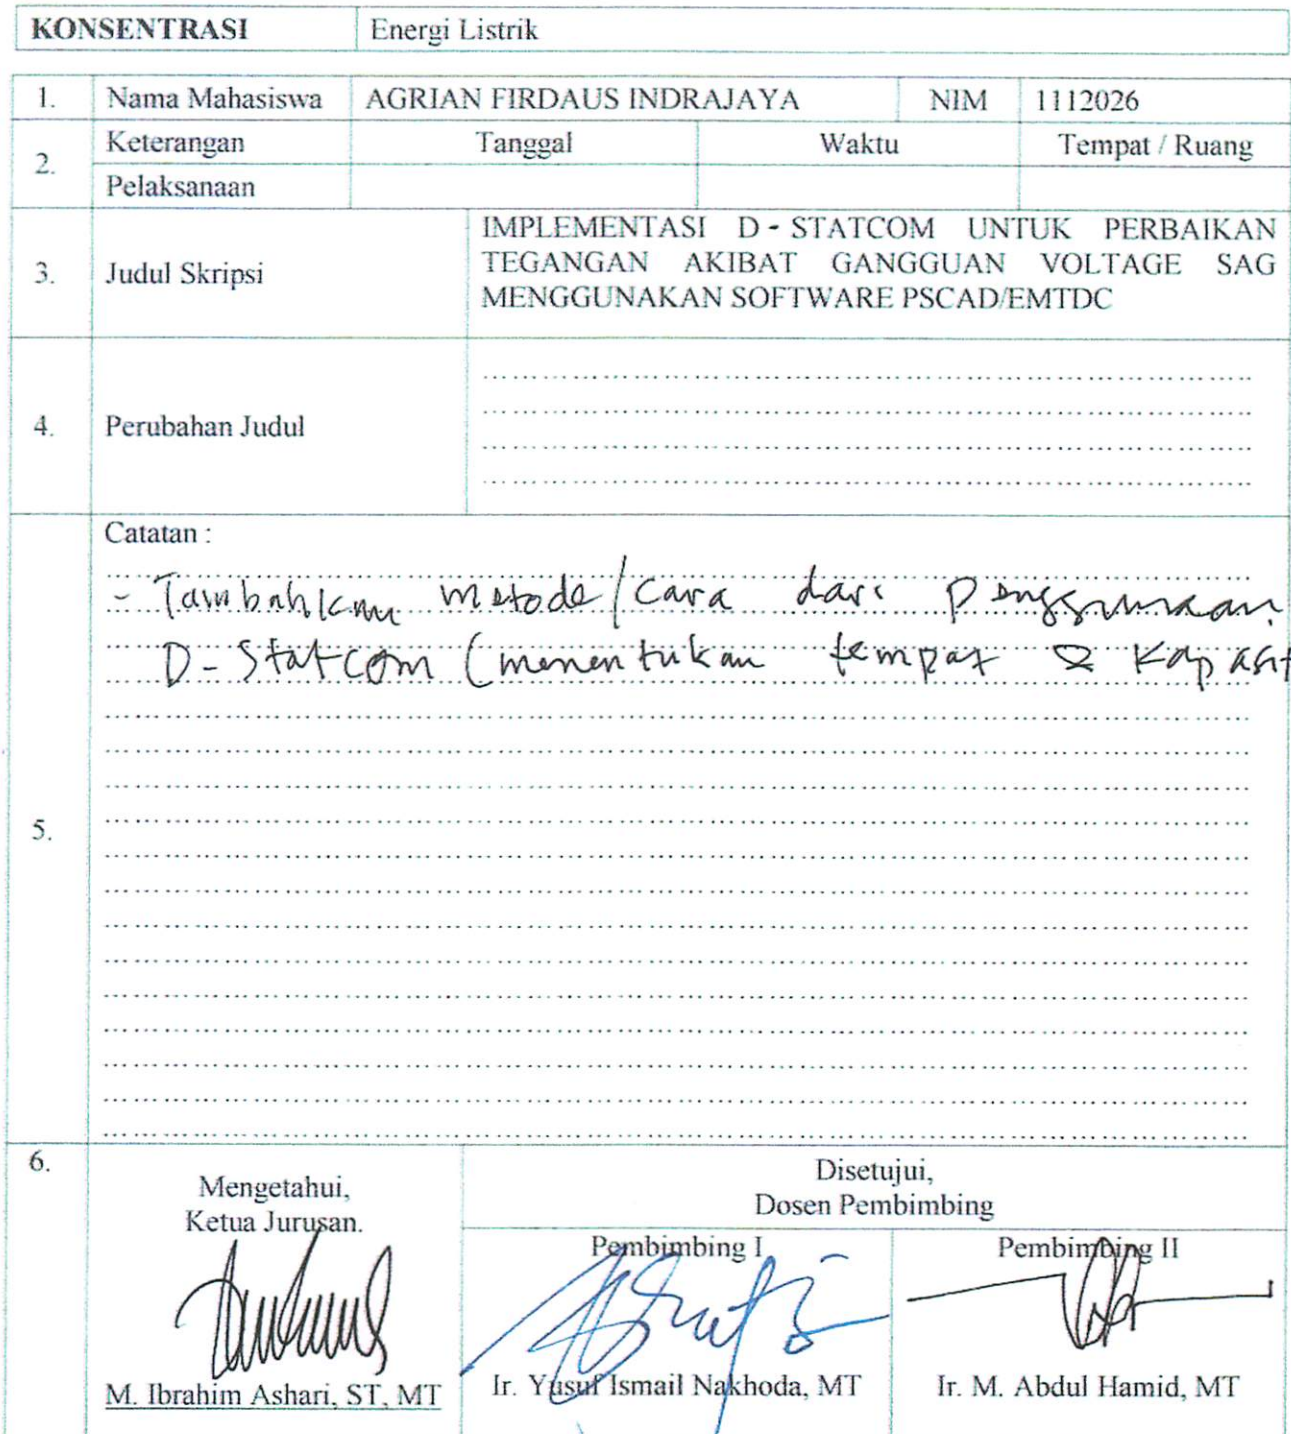 KONSENTRASI Energi Listrik
1. Nama Mahasiswa AGRIAN FIRDAUS INDRAJAYA NIM 1112026
2. Keterangan Tanggal Waktu Tempat / Ruang
Pelaksanaan
3. Judul Skripsi
IMPLEMENTASI D - STATCOM UNTUK PERBAIKAN
TEGANGAN AKIBAT GANGGUAN VOLTAGE SAG
MENGGUNAKAN SOFTWARE PSCAD/EMTDC
4. Perubahan Judul
5.
Catatan :
- Tambahkan metode/cara dari penggunaan
D-Statcom (menentukan tempat & kapasit
6.
Mengetahui,
Ketua Jurusan.
M. Ibrahim Ashari, ST, MT
Disetujui,
Dosen Pembimbing
Pembimbing I
Ir. Yusuf Ismail Nakhoda, MT
Pembimbing II
Ir. M. Abdul Hamid, MT